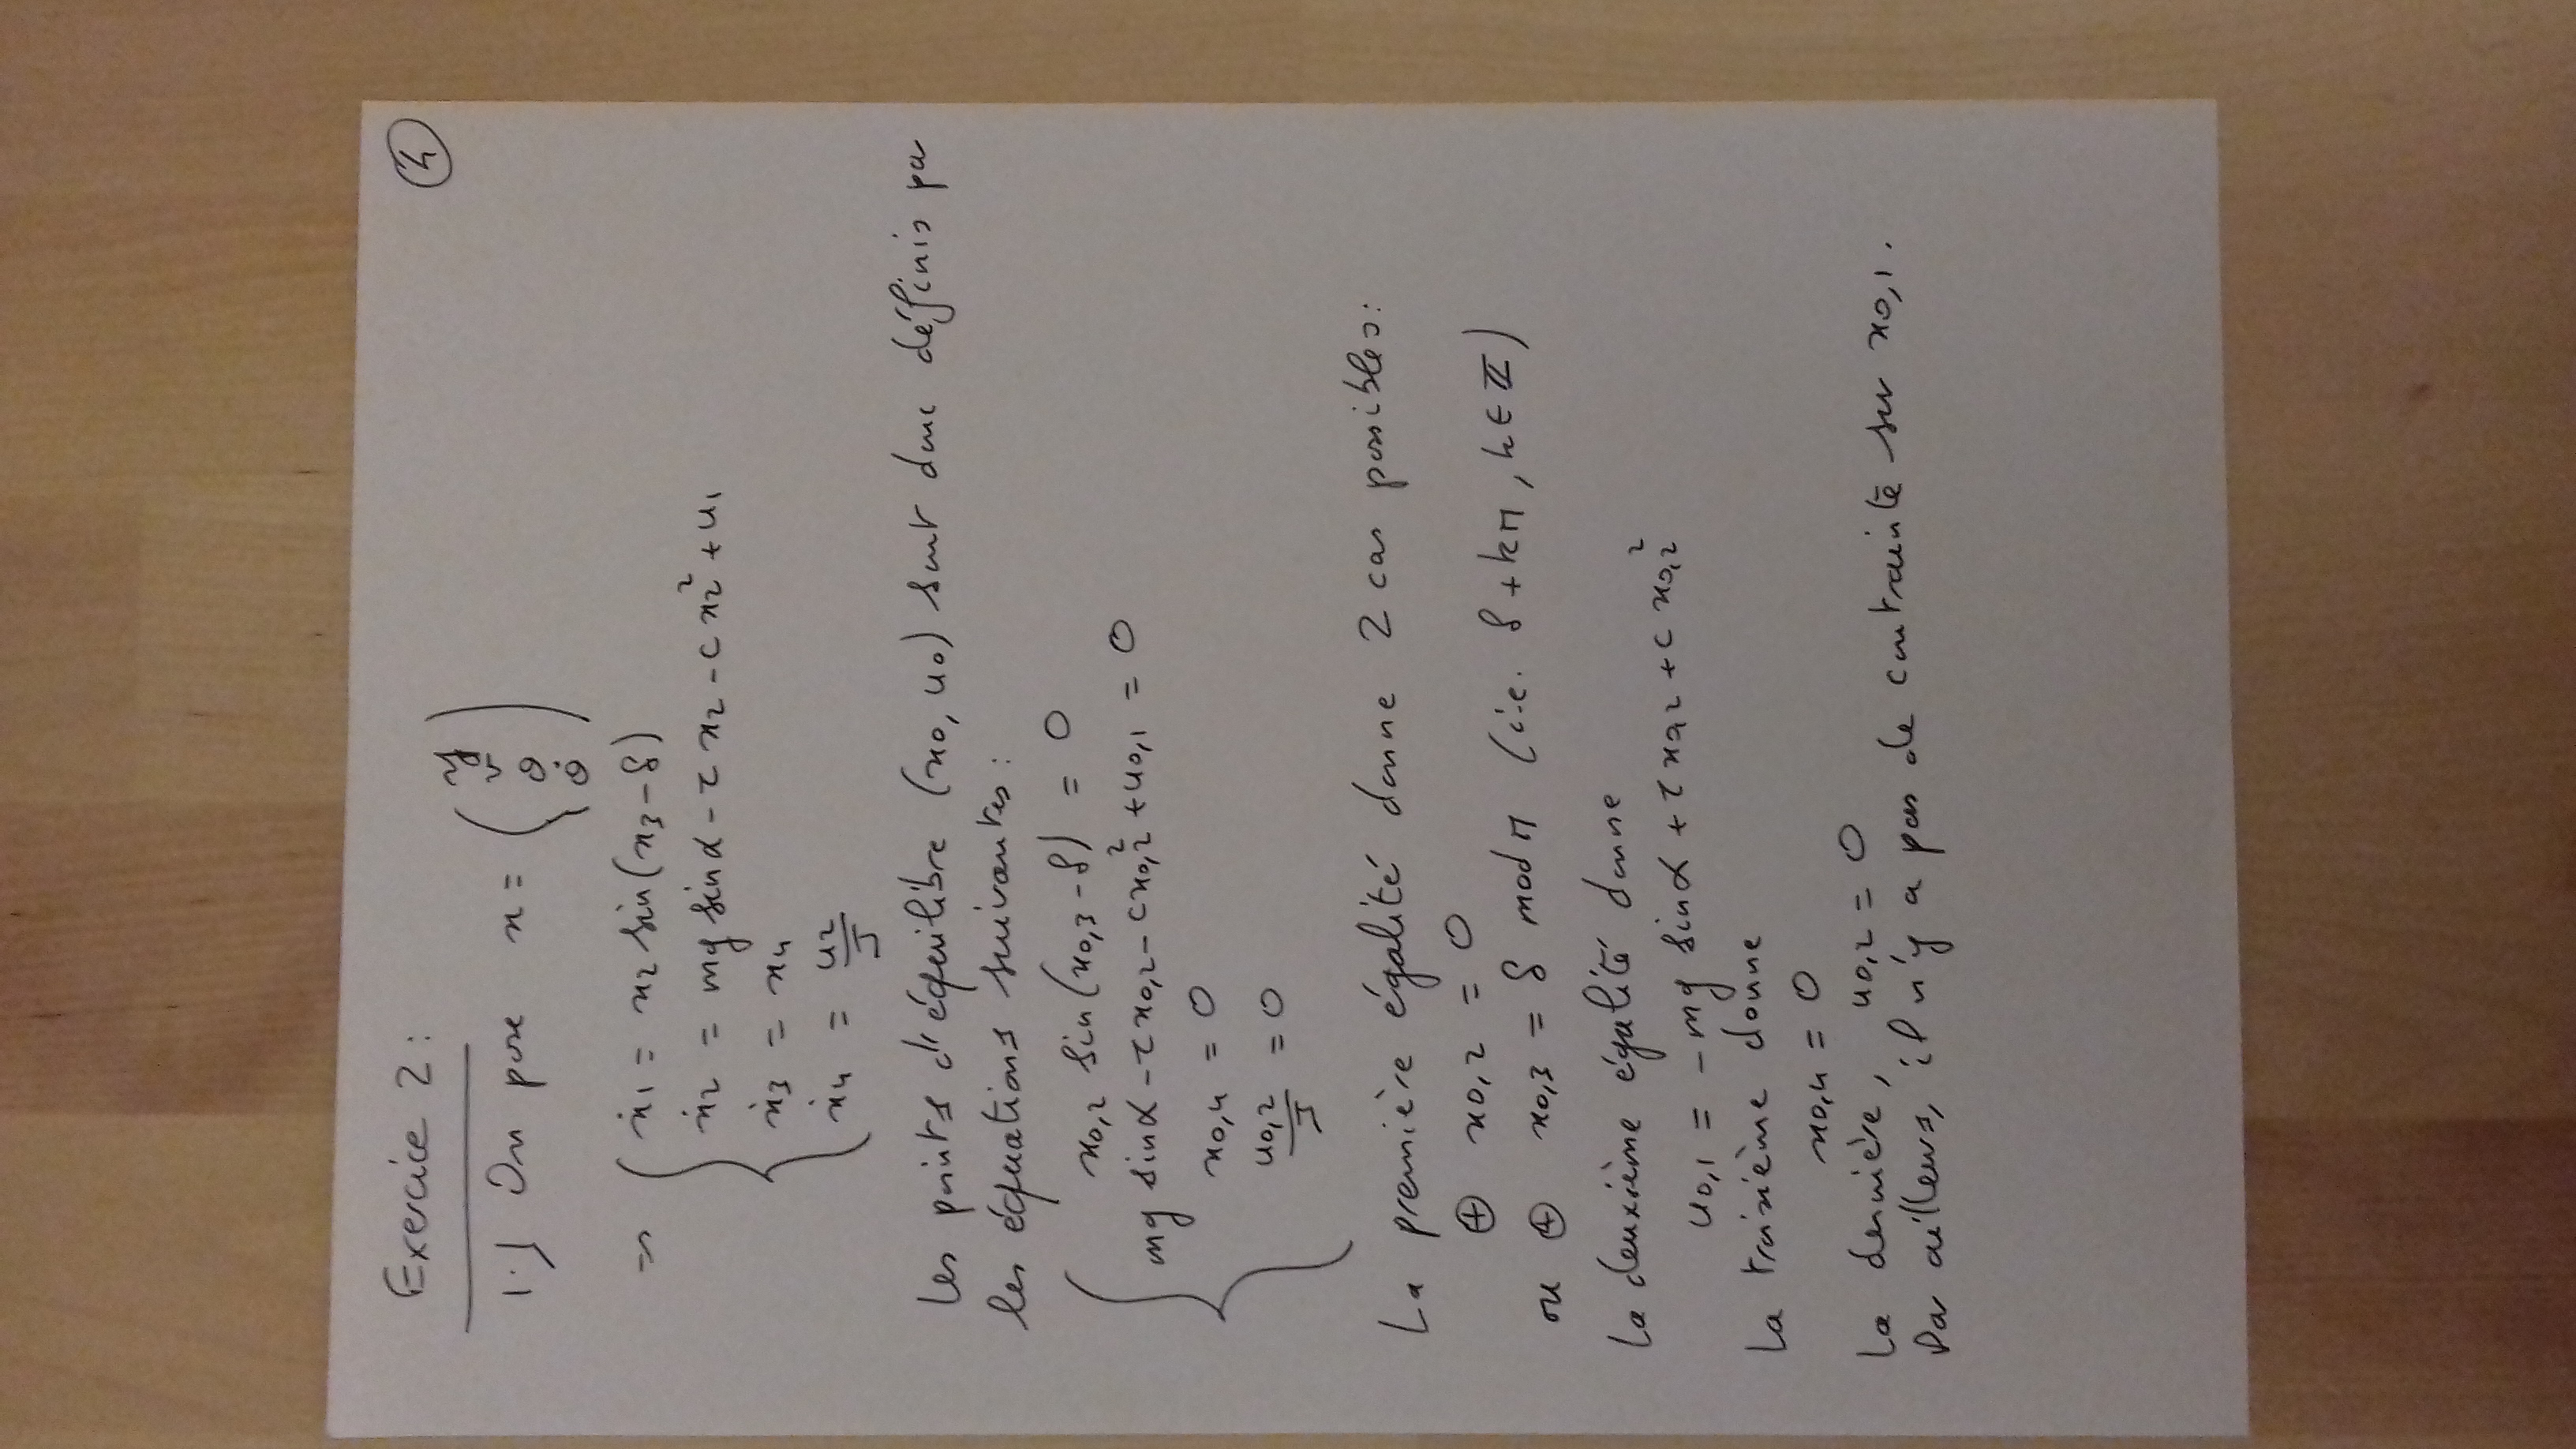 Exercice 2 :
4
1.) On pose x = ( y
v
θ
θ̇ )
⇒ { ẋ1 = x2 sin(x3 - δ)
ẋ2 = mg sinα - τ x2 - c x2² + u1
ẋ3 = x4
ẋ4 = u2/J
Les points d'équilibre (x0, u0) sont donc définis par
les équations suivantes :
{ x0,2 sin(x0,3 - δ) = 0
mg sinα - τ x0,2 - c x0,2² + u0,1 = 0
x0,4 = 0
u0,2/J = 0
La première égalité donne 2 cas possibles :
⊕ x0,2 = 0
ou ⊕ x0,3 = δ mod π (i.e. δ + kπ, k ∈ ℤ)
La deuxième égalité donne
u0,1 = -mg sinα + τ x0,2 + c x0,2²
La troisième donne
x0,4 = 0
La dernière, u0,2 = 0
Par ailleurs, il n'y a pas de contrainte sur x0,1.